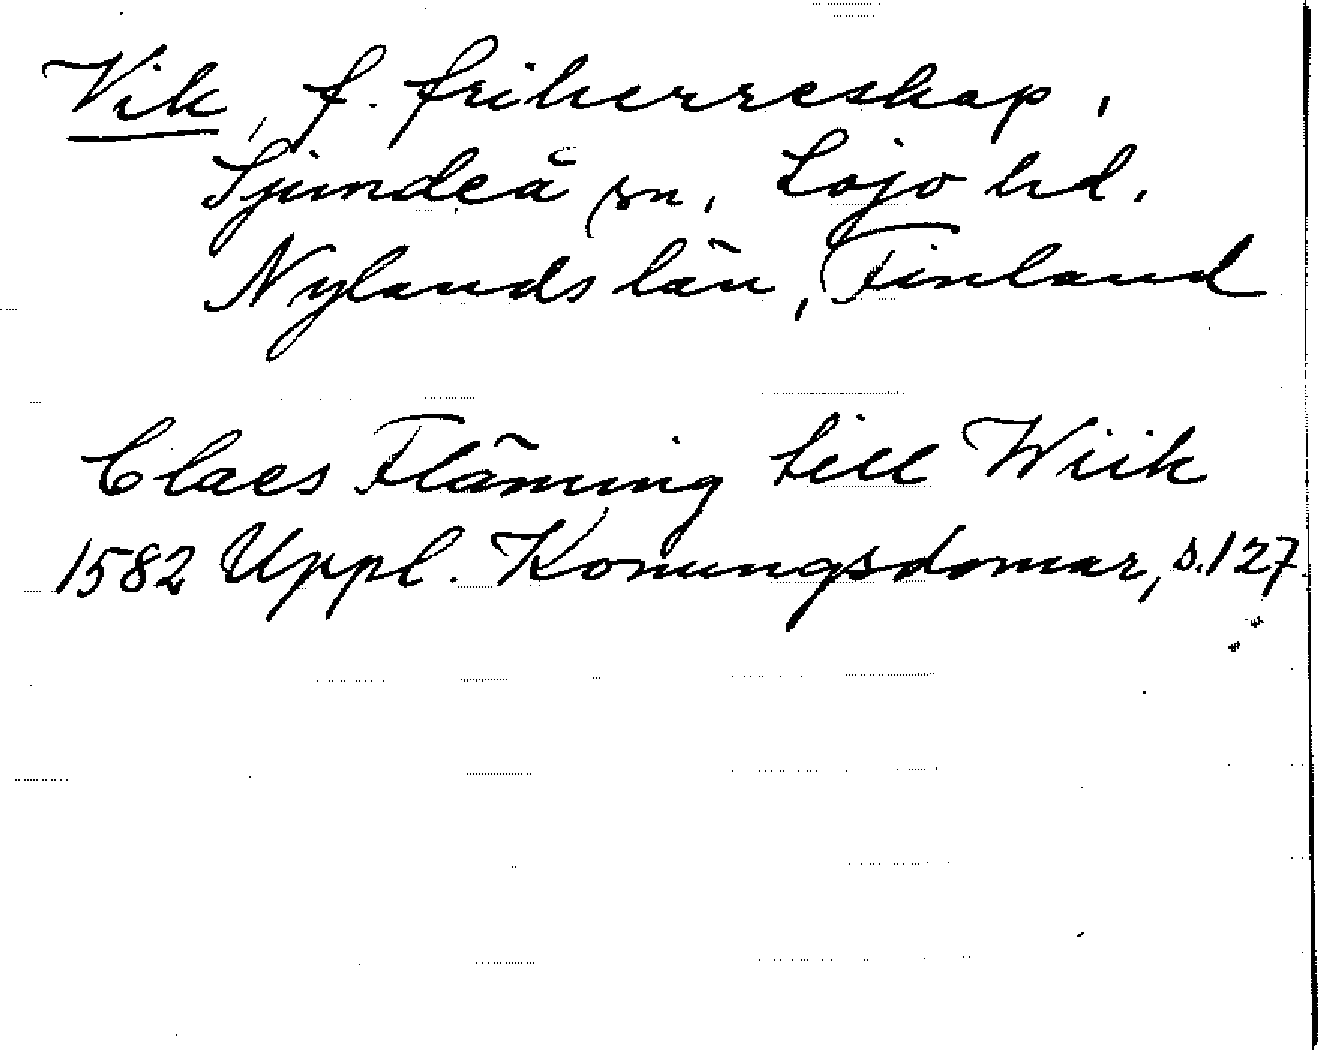 Vik, f. friherreskap,
Sjundeå sn, Lojo hd.
Nylands län, Finland
Claes Fläming till Wiik
1582 Uppl. Konungsdomar, s.127.